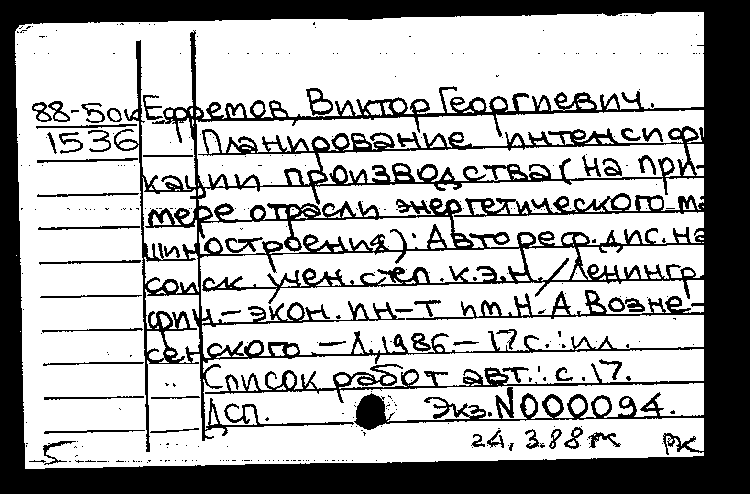 88-5ок Ефремов, Виктор Георгиевич.
1536 Планирование интенсифи
кации производства (на при-
мере отрасли энергетического ма
шиностроения): Автореф. дис. на
соиск. учен. степ. к.э.н. / Ленингр.
фин.-экон. ин-т им. Н.А. Возне-
сенского. - Л., 1986. - 17 с.: ил.
Список работ авт.: с. 17.
ДСП. Экз. N000094.
24, 3.88 РК
5